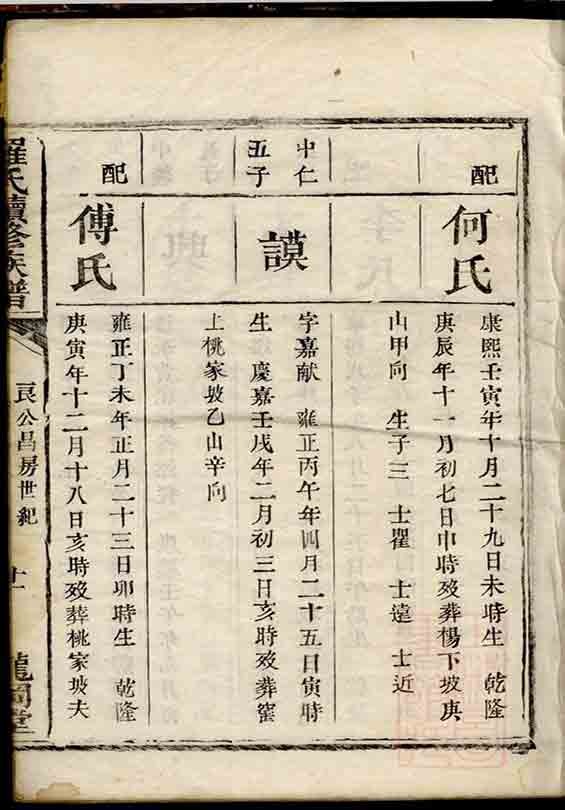 配
何氏
康熙壬寅年十月二十九日未時生 乾隆
庚辰年十一月初七日申時歿葬楊下坡庚
山甲向 生子三 士瞿 士遠 士近
中仁
五子
謨
字嘉猷 雍正丙午年四月二十五日寅時
生 慶嘉壬戌年二月初三日亥時歿葬窰
上桃家坡乙山辛向
配
傅氏
雍正丁未年正月二十三日卯時生 乾隆
庚寅年十二月十八日亥時歿葬桃家坡夫
羅氏續修族譜
良公昌房世紀
十一